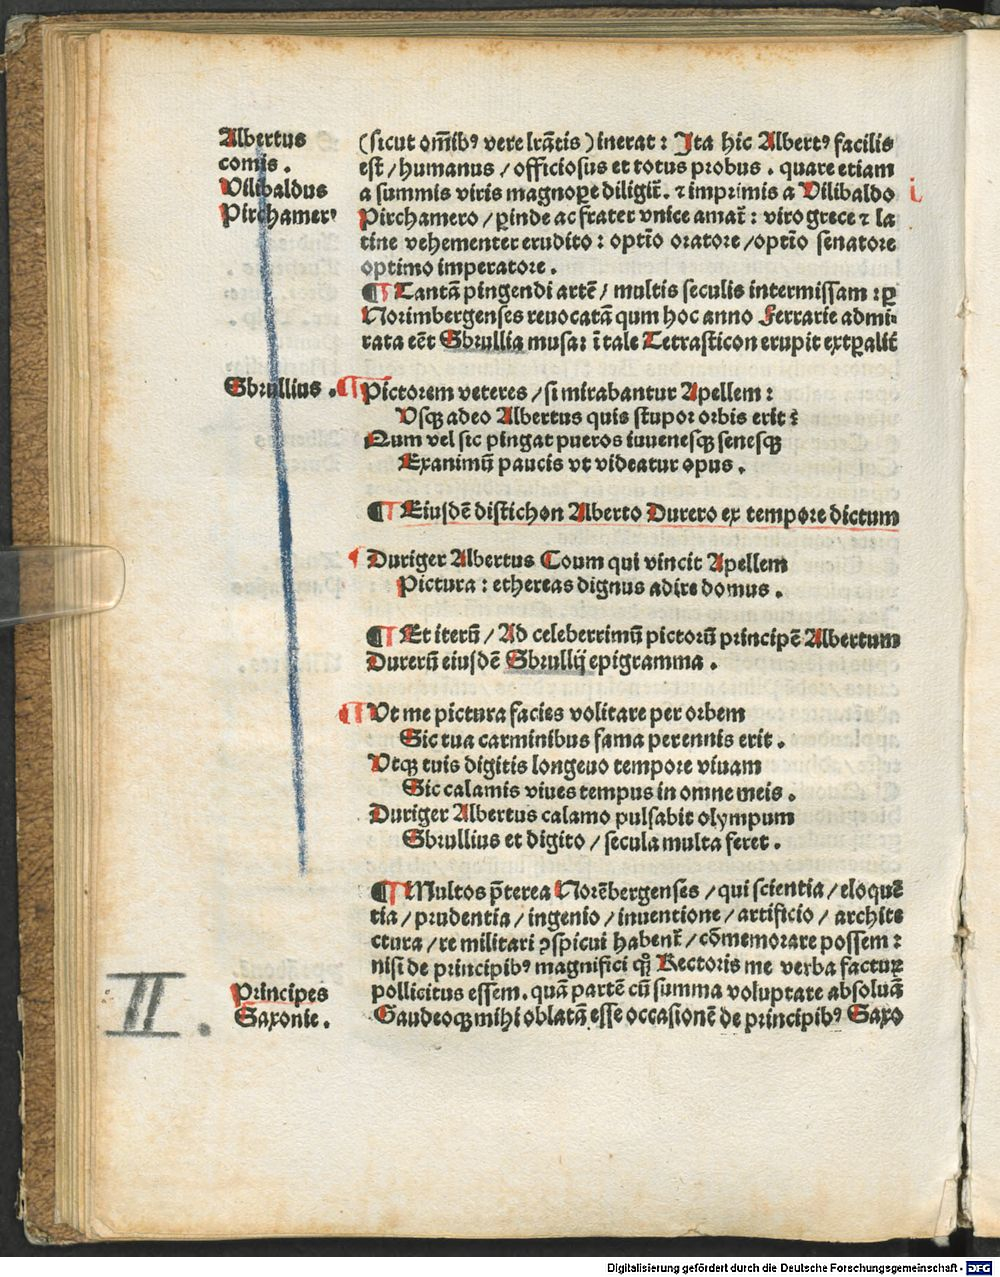 Albertus
comis.
Vilibaldus
Pirchamerꝰ
(sicut om̄ibꝰ vere lr̄atis) inerat: Ita hic Albertꝰ facilis
est / humanus / officiosus et totus probus. quare etiam
a summis viris magnoꝑe diligit̃. ⁊ imprimis a Vilibaldo
i
Pirchamero / ꝑinde ac frater vnice amat̃: viro grece ⁊ la
tine vehementer erudito: optīo oratore / optīo senatore
optimo imperatore.
¶ Tantā pingendi artē / multis seculis intermissam: ꝑ
Norimbergenses reuocatā qum hoc anno Ferrarie admi⸗
rata eēt Sbrullia musa: ī tale Tetrasticon erupit extꝑalit̃
Sbrullius.
¶ Pictorem veteres / si mirabantur Apellem:
Vsqꝫ adeo Albertus quis stupor orbis erit?
Qum vel sic pingat pueros iuuenesqꝫ senesqꝫ
Exanimū paucis vt videatur opus.
¶ Eiusdē distichon Alberto Durero ex tempore dictum
Duriger Albertus Coum qui vincit Apellem
Pictura: ethereas dignus adire domus.
¶ Et iterū / Ad celeberrimū pictorū principē Albertum
Durerū eiusdē Sbrullij epigramma.
¶ Vt me pictura facies volitare per orbem
Sic tua carminibus fama perennis erit.
Vtqꝫ tuis digitis longeuo tempore viuam
Sic calamis viues tempus in omne meis.
Duriger Albertus calamo pulsabit olympum
Sbrullius et digito / secula multa feret.
¶ Multos p̄terea Norēbergenses / qui scientia / eloquē
tia / prudentia / ingenio / inuentione / artificio / archite
ctura / re militari ꝯspicui habent̃ / cōmemorare possem:
nisi de principibꝰ magnifici qͦꝫ Rectoris me verba facturꝫ
pollicitus essem. quā partē cū summa voluptate absoluā
Principes
Saxonie.
Gaudeoqꝫ mihi oblatā esse occasionē de principibꝰ Saxo
II.
Digitalisierung gefördert durch die Deutsche Forschungsgemeinschaft - DFG